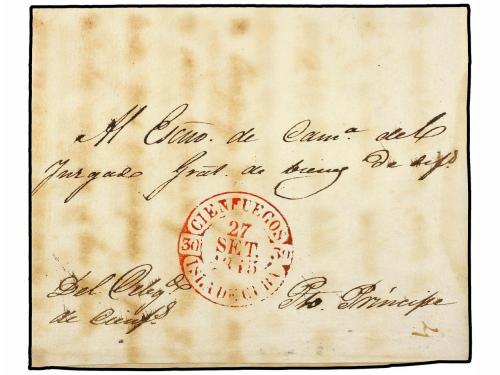 Al Escno. de Cama. del
Juzgado Gral. de bienes de difs.
CIENFUEGOS
27
SET.
1845
30
ISLA DE CUBA
Del Delegdo.
de Cienfs.
Pto. Príncipe